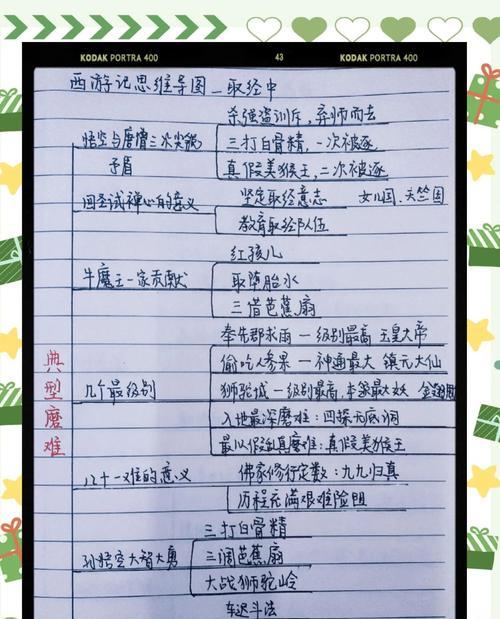 KODAK PORTRA 400 43 KODAK PORTRA 400
西游记思维导图_取经中
杀强盗训斥，弃师而去
悟空与唐僧三次尖锐
矛盾
三打白骨精，一次被逐
真假美猴王，二次被逐
四圣试禅心的意义
坚定取经意志 女儿国、天竺国
教育取经队伍
红孩儿
牛魔王一家贡献
取堕胎水
三借芭蕉扇
奉先郡求雨 — 级别最高 玉皇大帝
偷吃人参果 — 神通最大 镇元大仙
典型磨难
几个最级别
狮驼城 — 级别最高，本领最大妖
入地最深磨难：四探无底洞
最以假乱真磨难：真假美猴王
八十一难的意义
佛家修行定数：九九归真
历程充满艰难险阻
三打白骨精
孙悟空大智大勇
三调芭蕉扇
大战狮驼岭
车迟斗法